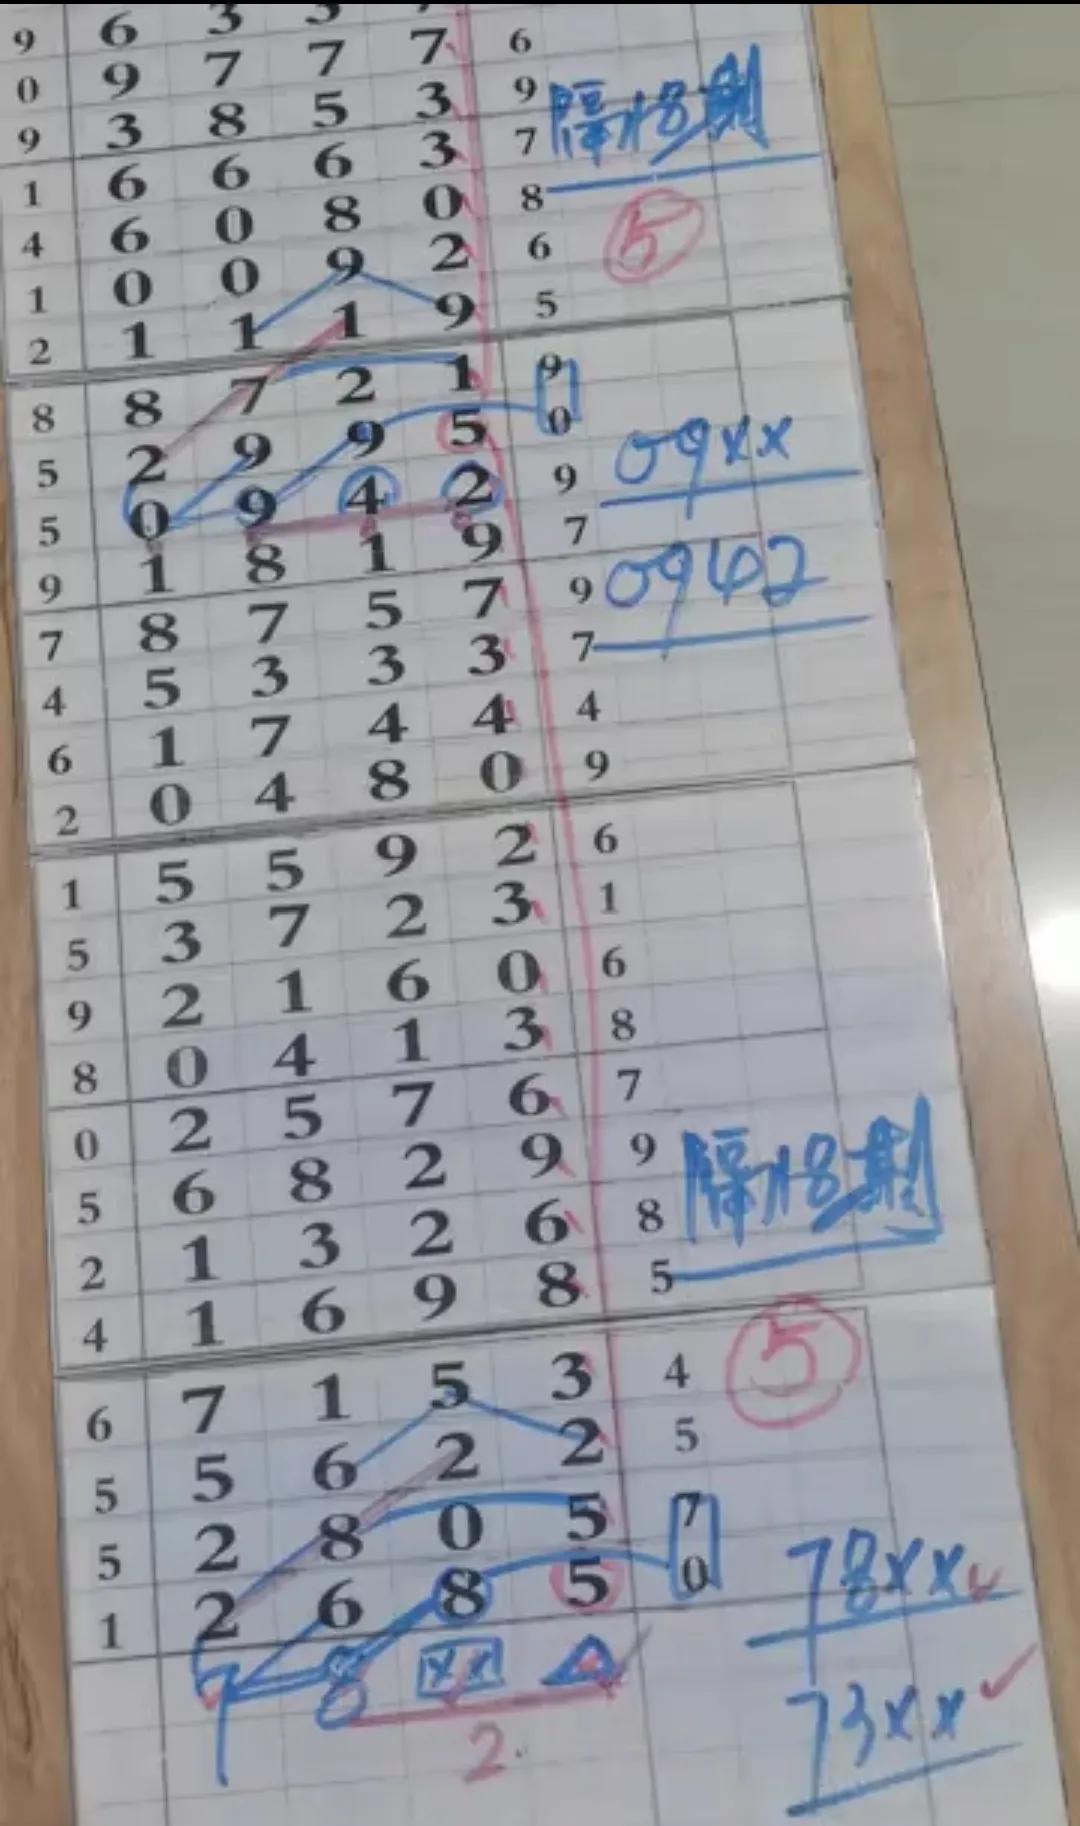 9 6 3 3 7
0 9 7 7 7 6
9 3 8 5 3 9
隔拾8期
1 6 6 6 3 7
4 6 0 8 0 8
5
1 0 0 9 2 6
2 1 1 1 9 5
8 8 7 2 1 9
5 2 9 9 5 0
09xx
5 0 9 4 2 9
9 1 8 1 9 7
0942
7 8 7 5 7 9
4 5 3 3 3 7
6 1 7 4 4 4
2 0 4 8 0 9
1 5 5 9 2 6
5 3 7 2 3 1
9 2 1 6 0 6
8 0 4 1 3 8
0 2 5 7 6 7
5 6 8 2 9 9
隔拾8期
2 1 3 2 6 8
4 1 6 9 8 5
5
6 7 1 5 3 4
5 5 6 2 2 5
5 2 8 0 5 7
78xx
1 2 6 8 5 0
7 8 xx
73xx
2.